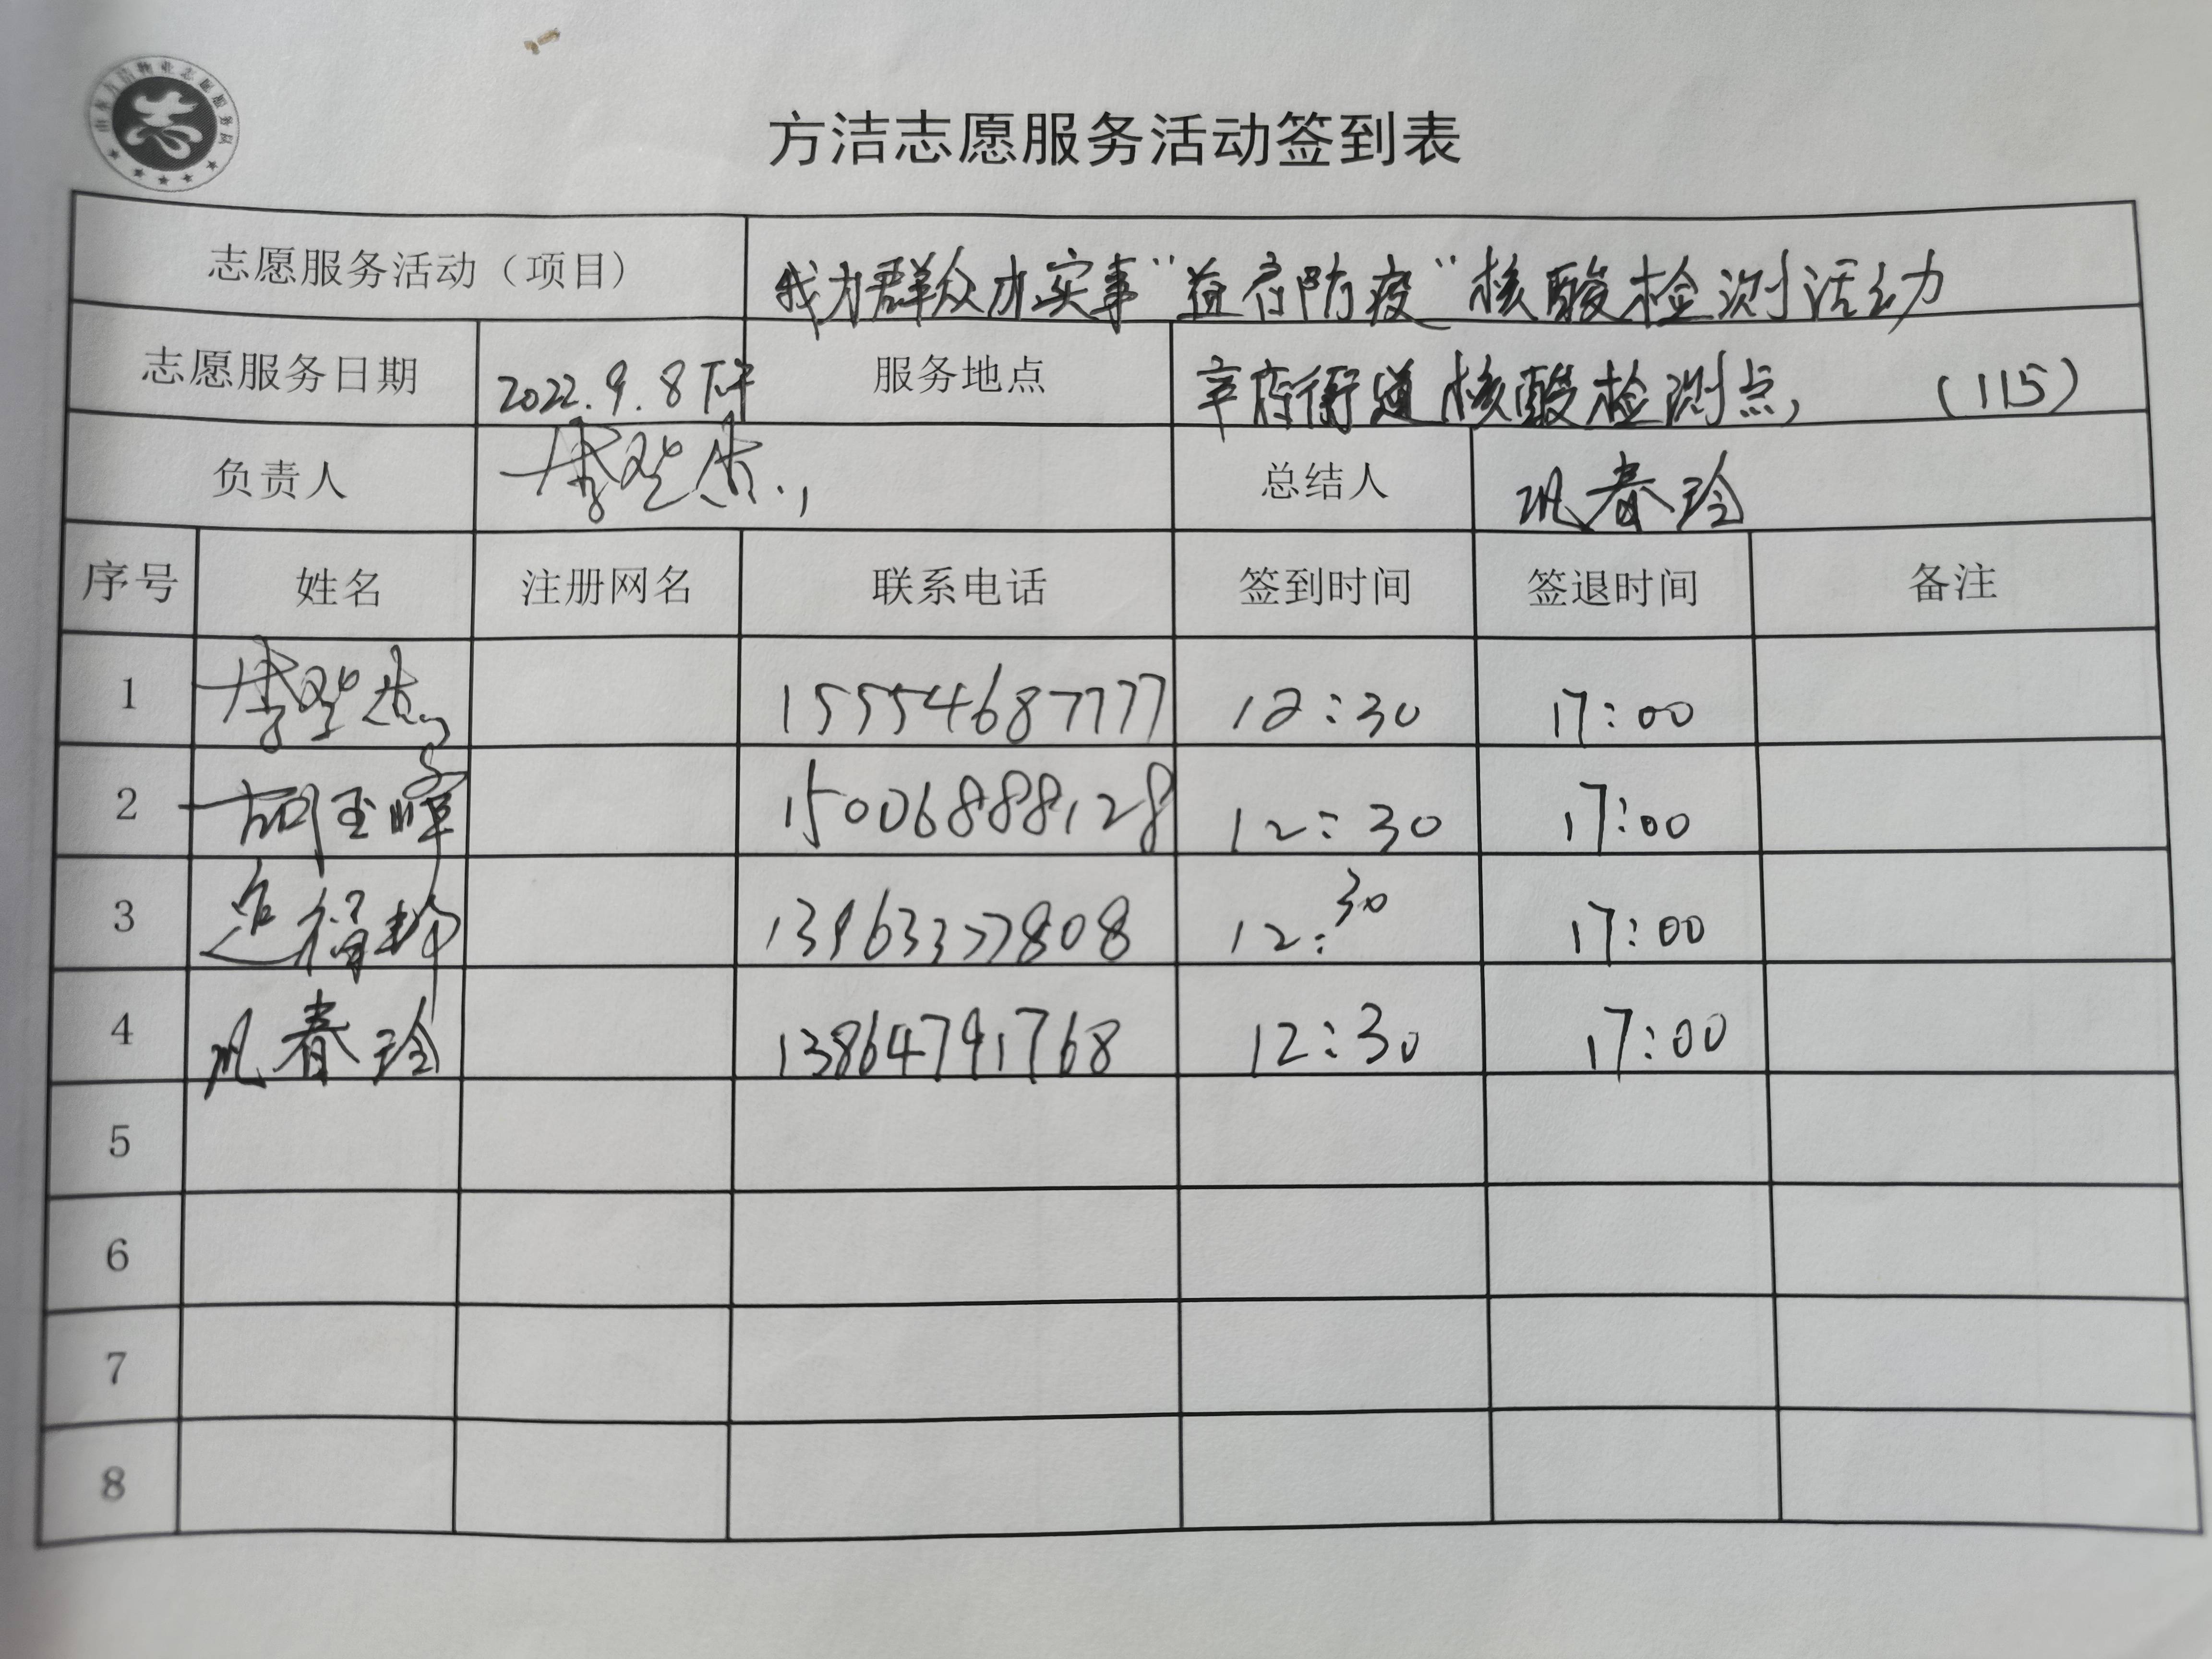 山东方洁物业志愿服务队
志
方洁志愿服务活动签到表
志愿服务活动（项目） 我为群众办实事"益存防疫"核酸检测活动
志愿服务日期 2022.9.8下午 服务地点 辛店街道核酸检测点, (115)
负责人 李登杰 总结人 巩春玲
序号 姓名 注册网名 联系电话 签到时间 签退时间 备注
1 李登杰 15554687777 12:30 17:00
2 胡玉晖 15006888128 12:30 17:00
3 13963377808 12:30 17:00
4 巩春玲 13864791768 12:30 17:00
5
6
7
8